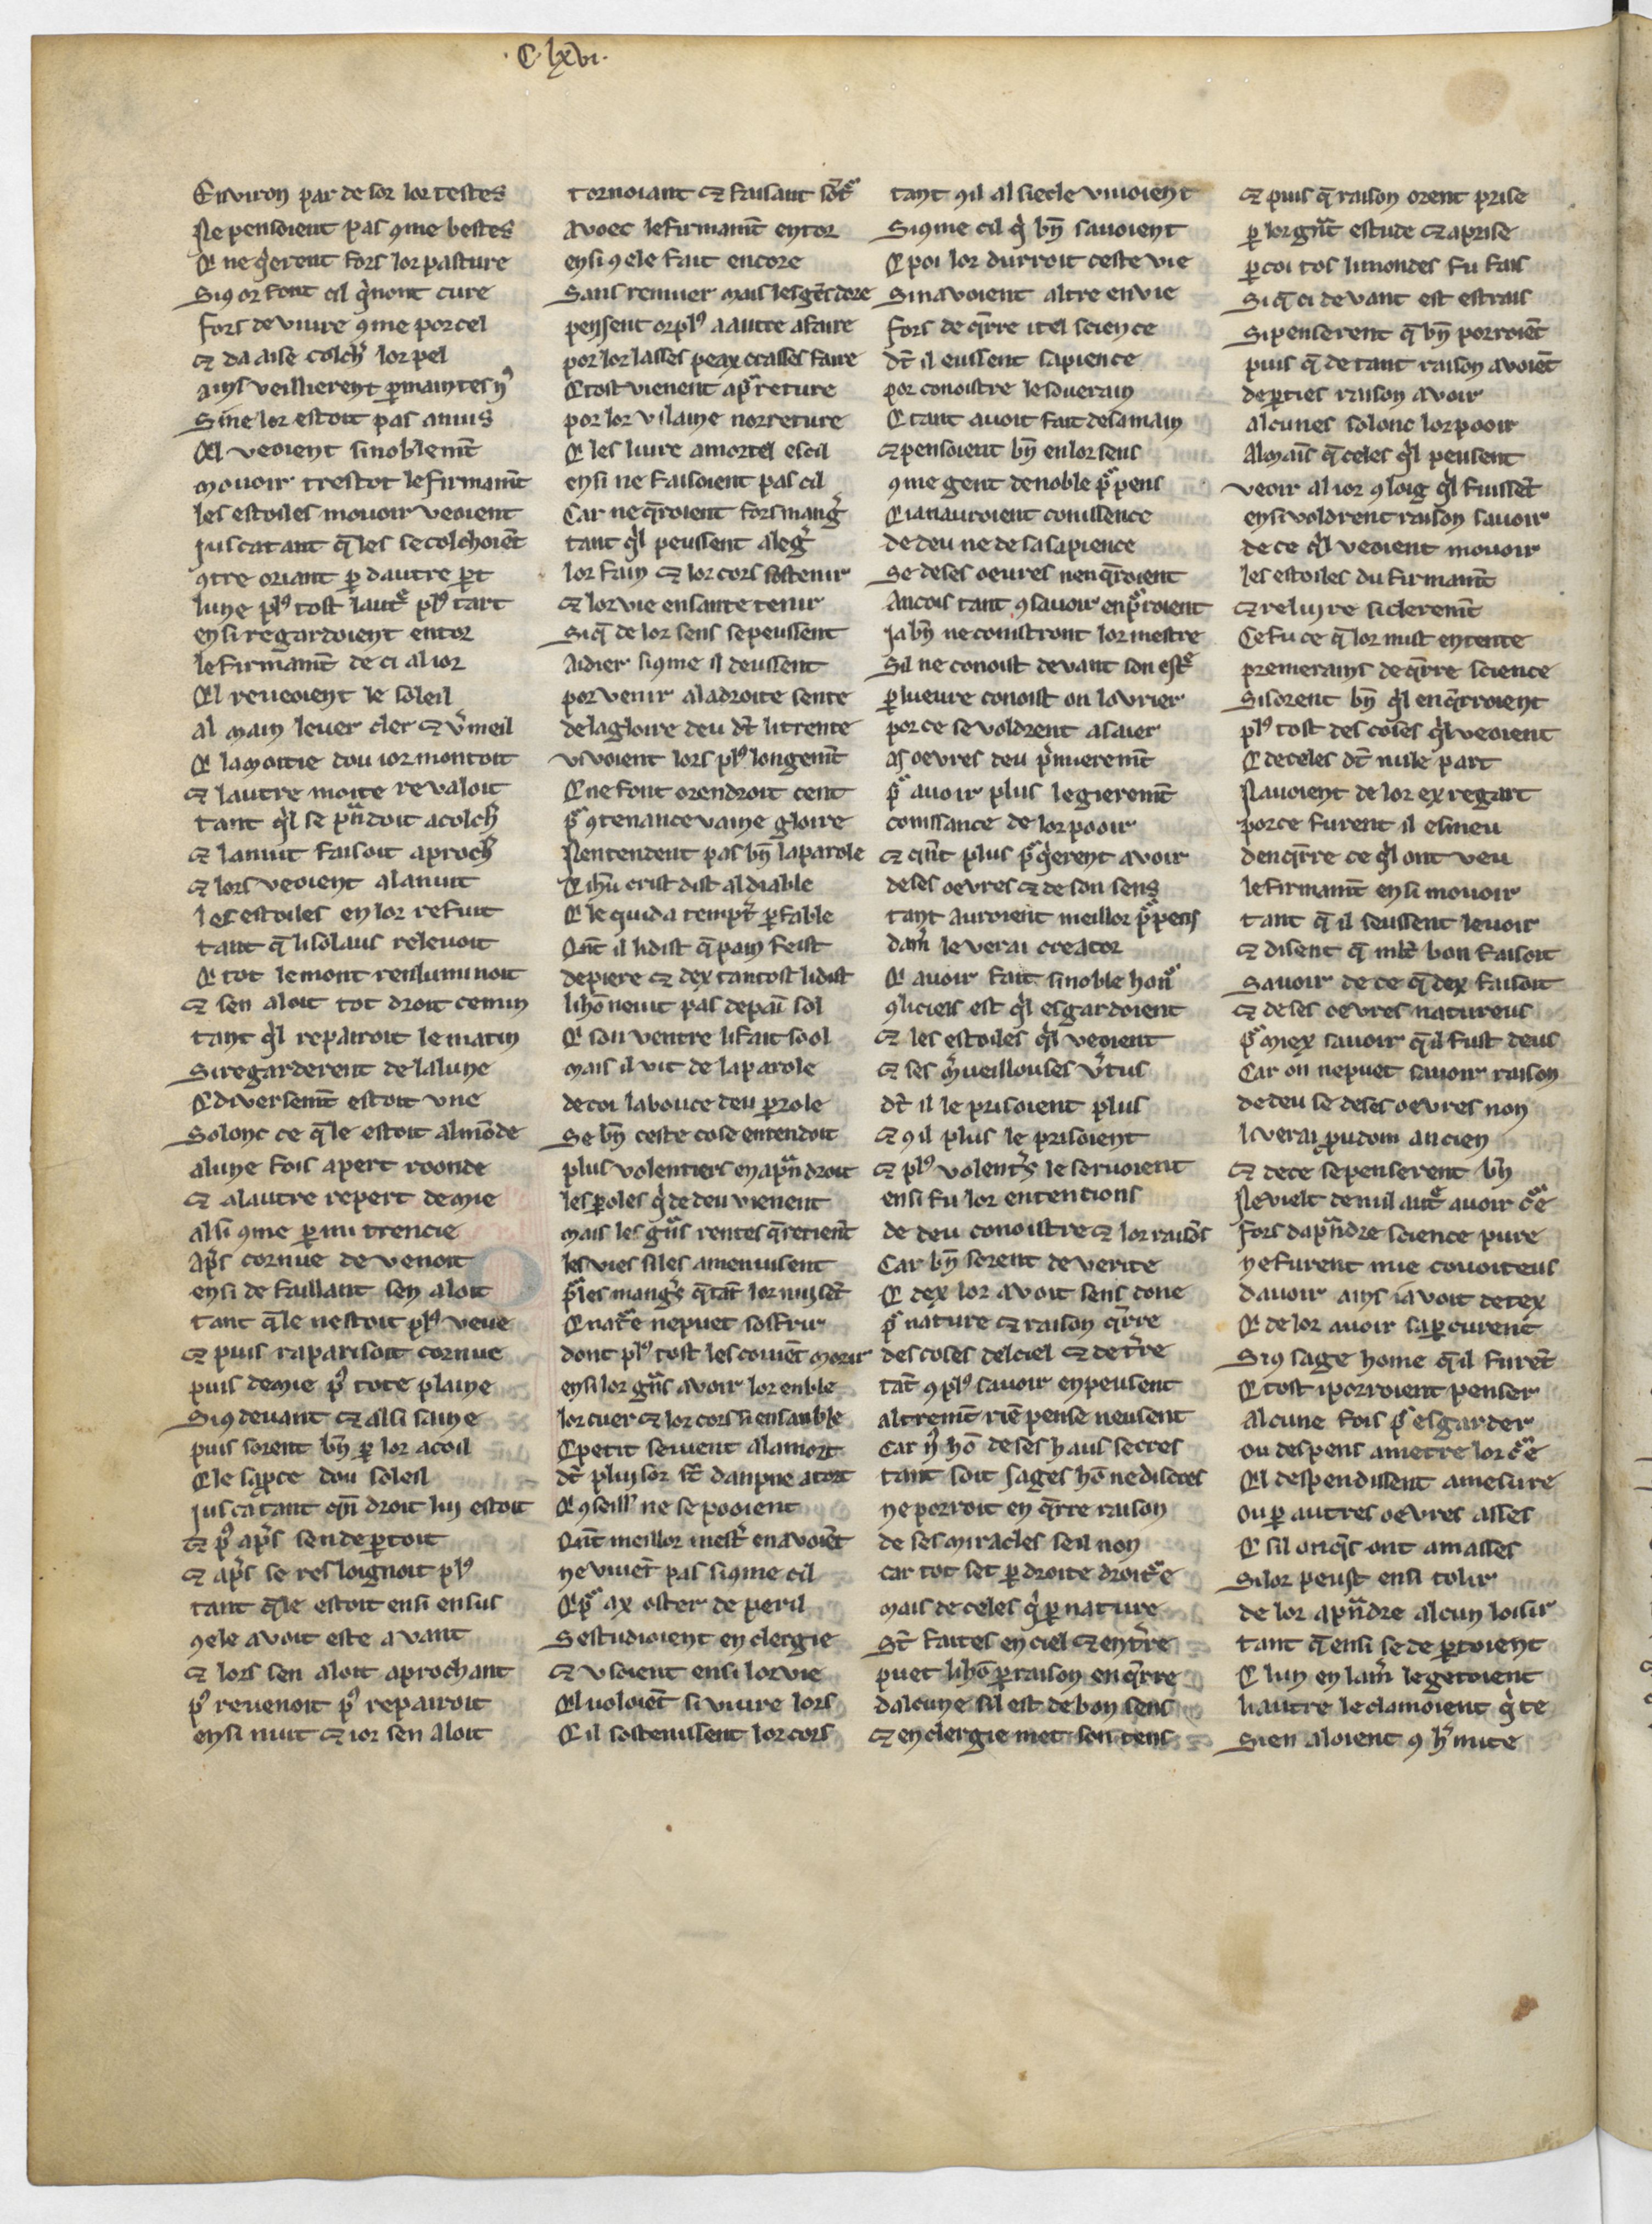 .C.lxvi.
Environ par de sor lor testes
Ne pensoient pas ꝯme bestes
Q ne q̍erent fors lor pasture
Siꝯ or font cil q̍nont cure
fors de viure ꝯme porcel
⁊ da aise colch̾ lor pel
ains veillierent ꝑmaintes nꝰ
Si ne lor estoit pas anuis
Ql veoient si noblem̄t
movoir trestot le firmam̄t
les estoiles movoir veoient
Jusca tant q̄ les se colchoiēt
ꝯtre oriant ꝑ dautre ꝑt
lune plꝰ tost lautͤ plꝰ tart
ensi regardoient entor
le firmam̄t de ci al ior
Ql reveoient le soleil
Al main lever cler ⁊ v̾meil
Q la moitie dou ior montoit
⁊ lautre moite revaloit
tant q̍l se pͣndoit a colch̾
⁊ la nuit faisoit aproch̾
⁊ lors veoient a la nuit
les estoiles en lor refuit
tant q̄ li solaus relevoit
Q tot le mont renluminoit
⁊ sen aloit tot droit cemin
tant q̍l repairoit le matin
Si regarderent de la lune
Q diversem̄t estoit une
Solonc ce q̄le estoit al mōde
a lune fois apert roonde
⁊ a lautre repert demie
alsi ꝯme ꝑ mi trencie
Ap̾s cornue devenoit
ensi defaillant sen aloit
tant q̄le nestoit plꝰ veue
⁊ puis raparisoit cornue
puis demie pꝰ tote plaine
Siꝯ devant ⁊ alsi saine
puis sorent bn̄ ꝑ lor acoil
Q le saproce dou soleil
Jusca tant qn̄ droit lui estoit
⁊ pꝰ ap̾s sen deꝑtoit
⁊ ap̾s se resloignoit plꝰ
tant q̄le estoit ensi ensus
ꝯ ele avoit este avant
⁊ lors sen aloit aprochant
pꝰ revenoit pꝰ repairoit
ensi nuit ⁊ ior sen aloit
tornoiant ⁊ faisant sō tͦ
Avoec le firmam̄t entor
ensi ꝯ ele fait encore
Sans remuer mais les gēs dore
pensent or plꝰ a autre afaire
por lor lasses peax crasses faire
Q tost vienent a pͦreture
por lor vilaine norreture
Q les livre a mortel escil
ensi ne faisoient pas cil
Car ne q̄roient fors mang̾
tant q̍l peussent aleg̾
lor fain ⁊ lor cors sostenir
⁊ lor vie en sante tenir
Si q̄ de lor sens se peussent
Aidier si ꝯme il deussent
por venir a la droite sente
de la gloire deu dōt li trente
vivoient lors plꝰ longem̄t
Q ne font orendroit cent
pͦ ꝯtenance vaine gloire
Nentendent pas bn̄ la parole
Q ihū crist dist al diable
Q le quida tempt̾ ꝑ fable
Qn̄t il li dist q̄ pain feist
de piere ⁊ dex tantost li dist
li hō ne vit pas de pain sol
Q son ventre li fait sool
mais il vit de la parole
de coi la bouce deu ꝑole
Se bn̄ ceste cose entendoit
plus volentiers en apͣndroit
les ꝑoles q̍ de deu vienent
mais les gͣns rentes q̄ retienēt
les vies si les amenuisent
pͦ les mang̾s q̄ tāt lor nuisēt
Q natͤe ne puet sosfrir
dont plꝰ tost les coviēt morir
ensi lor gͣns avoir lor enble
lor cuer ⁊ lor cors si ensanble
Q petit servent a la mort
dōt plusor sōt danpne a tort
Q ꝯseill̾ ne se pooient
Qn̄t meillor mestͤ en avoiēt
ne vivēt pas si ꝯme cil
Q pͦ ax oster de peril
Sestudioient en clergie
⁊ usoient ensi lor vie
Ql voloiēt si vivre lors
Q il sostenissent lor cors
tant ꝯ il al siecle vivoient
Si ꝯme cil q̍ bn̄ savoient
Q poi lor durroit ceste vie
Si navoient altre envie
fors de q̄rre itel science
dōt il eussent sapience
por conoistre le soverain
Q tant avoit fait de sa main
⁊ pensoient bn̄ en lor sens
ꝯme gent de noble pͦpens
Q ia nauroient conissence
de deu ne de sa sapience
Se de ses oevres nenq̄roient
Ancois tant ꝯ savoir en pͦroient
Ja bn̄ ne conistront lor mestre
Sil ne conoist devant son estͤ
ꝑ luevre conoist on lovrier
por ce se voldrent asaier
As oevres deu p̍mierem̄t
pͦ avoir plus legierem̄t
conissance de lor pooir
⁊ qn̄t plus pͦq̍erent avoir
de ses oevres ⁊ de son sens
tant auroient meillor pͦpens
dam̾ le verai creator
Q avoir fait si noble honͦ
ꝯ li ciels est q̍l esgardoient
⁊ les estoiles q̍l veoient
⁊ ses m̾veillouses v̾tus
dōt il le prisoient plus
⁊ ꝯ il plus le prisoient
⁊ plꝰ volent̾s le servoient
ensi fu lor entencions
de deu conoistre ⁊ lor raisōs
Car bn̄ sorent de verite
Q dex lor avoit sens done
pͦ nature ⁊ raison q̄rre
des coses del ciel ⁊ de t̾re
tāt ꝯ plꝰ savoir en peusent
altrem̄t riē pense neusent
Car nꝰ hō de ses haus secres
tant soit sages hō ne discres
ne porroit enq̄rre raison
de ses miracles se il non
car tot set ꝑ droite droitͤe
mais de celes q̍ ꝑ nature
Sōt faites en ciel ⁊ en t̾re
puet li hō ꝑ raison enq̄rre
dalcune sil est de bon sens
⁊ en clergie met son tens
⁊ puis q̄ raison orent prise
ꝑ lor gͣnt estude ⁊ aprise
ꝑ coi tos li mondes fu fais
Si q̄ ci devant est estrais
Si penserent q̄ bn̄ porroiēt
puis q̄ de tant raison avoiēt
de ꝑties raison avoir
alcunes solonc lor pooir
Al mains q̄ celes q̍l peusent
veoir al ior ꝯ loig q̍l fuissēt
ensi voldrent raison savoir
de ce q̍l veoient movoir
les estoiles du firmam̄t
⁊ reluire si clerem̄t
Ce fu ce q̄ lor mist entente
premerains de q̄rre science
Si sorent bn̄ q̍l enq̄rroient
plꝰ tost des coses q̍l veoient
Q de celes dōt nule part
Navoient de lor ex regart
por ce furent il esmeu
denq̄rre ce q̍l ont veu
le firmam̄t ensi movoir
tant q̄ il seussent le voir
⁊ disent q̄ ml̄t bon faisoit
Savoir de ce q̄ dex faisoit
⁊ de ses oevres natureus
pͦ miex savoir q̄il fust deus
Car on ne puet savoir raison
de deu se de ses oevres non
li verai pͦudom ancien
⁊ de ce se penserent bn̄
Ne vielt de nul autͤ avoir cͤe
fors dapͣndre science pure
ne furent mie covoiteus
davoir ains iavoit de tex
Q de lor avoir saꝑcurent
Siꝯ sage home q̄il furēt
Q tost i porroient penser
Alcune fois pͦ esgarder
ou despens a metre lor cͤe
Ql despendissent a mesure
Ou ꝑ autres oevres asses
Q sil onq̄s ont amasses
Si lor peust ensi tolir
de lor apͣndre alcun loisir
tant q̄ ensi se deꝑtoient
Q lun en lam̾ le getoient
li autre le clamoient q̍te
Si en aloient ꝯ h̾mite